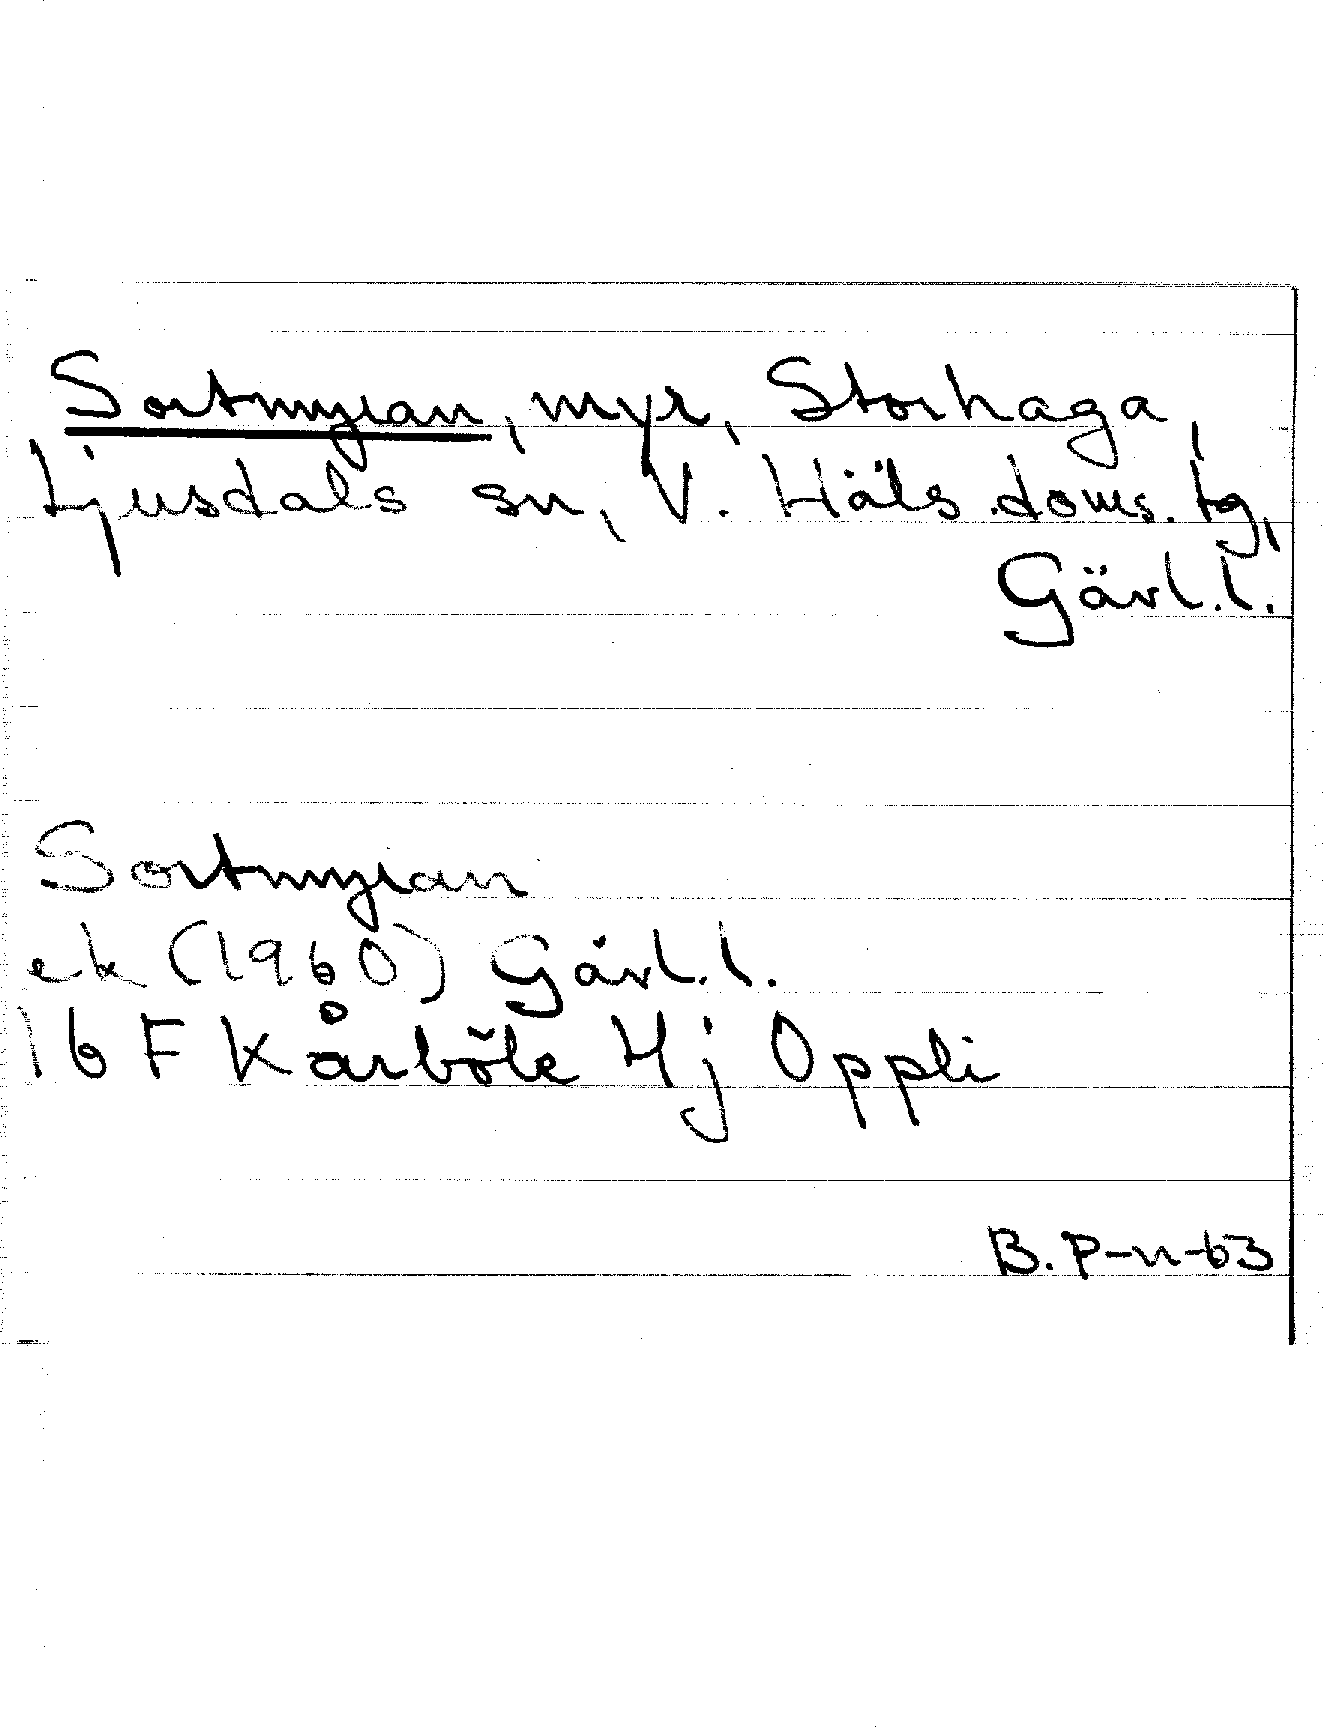 Sortmyran, myr, Storhaga,
Ljusdals sn, V. Häls. doms. tg,
Gävl. l.
Sortmyran
ek (1960) Gävl. l.
16 F Kårböle 4j Oppli
B. P-n-63